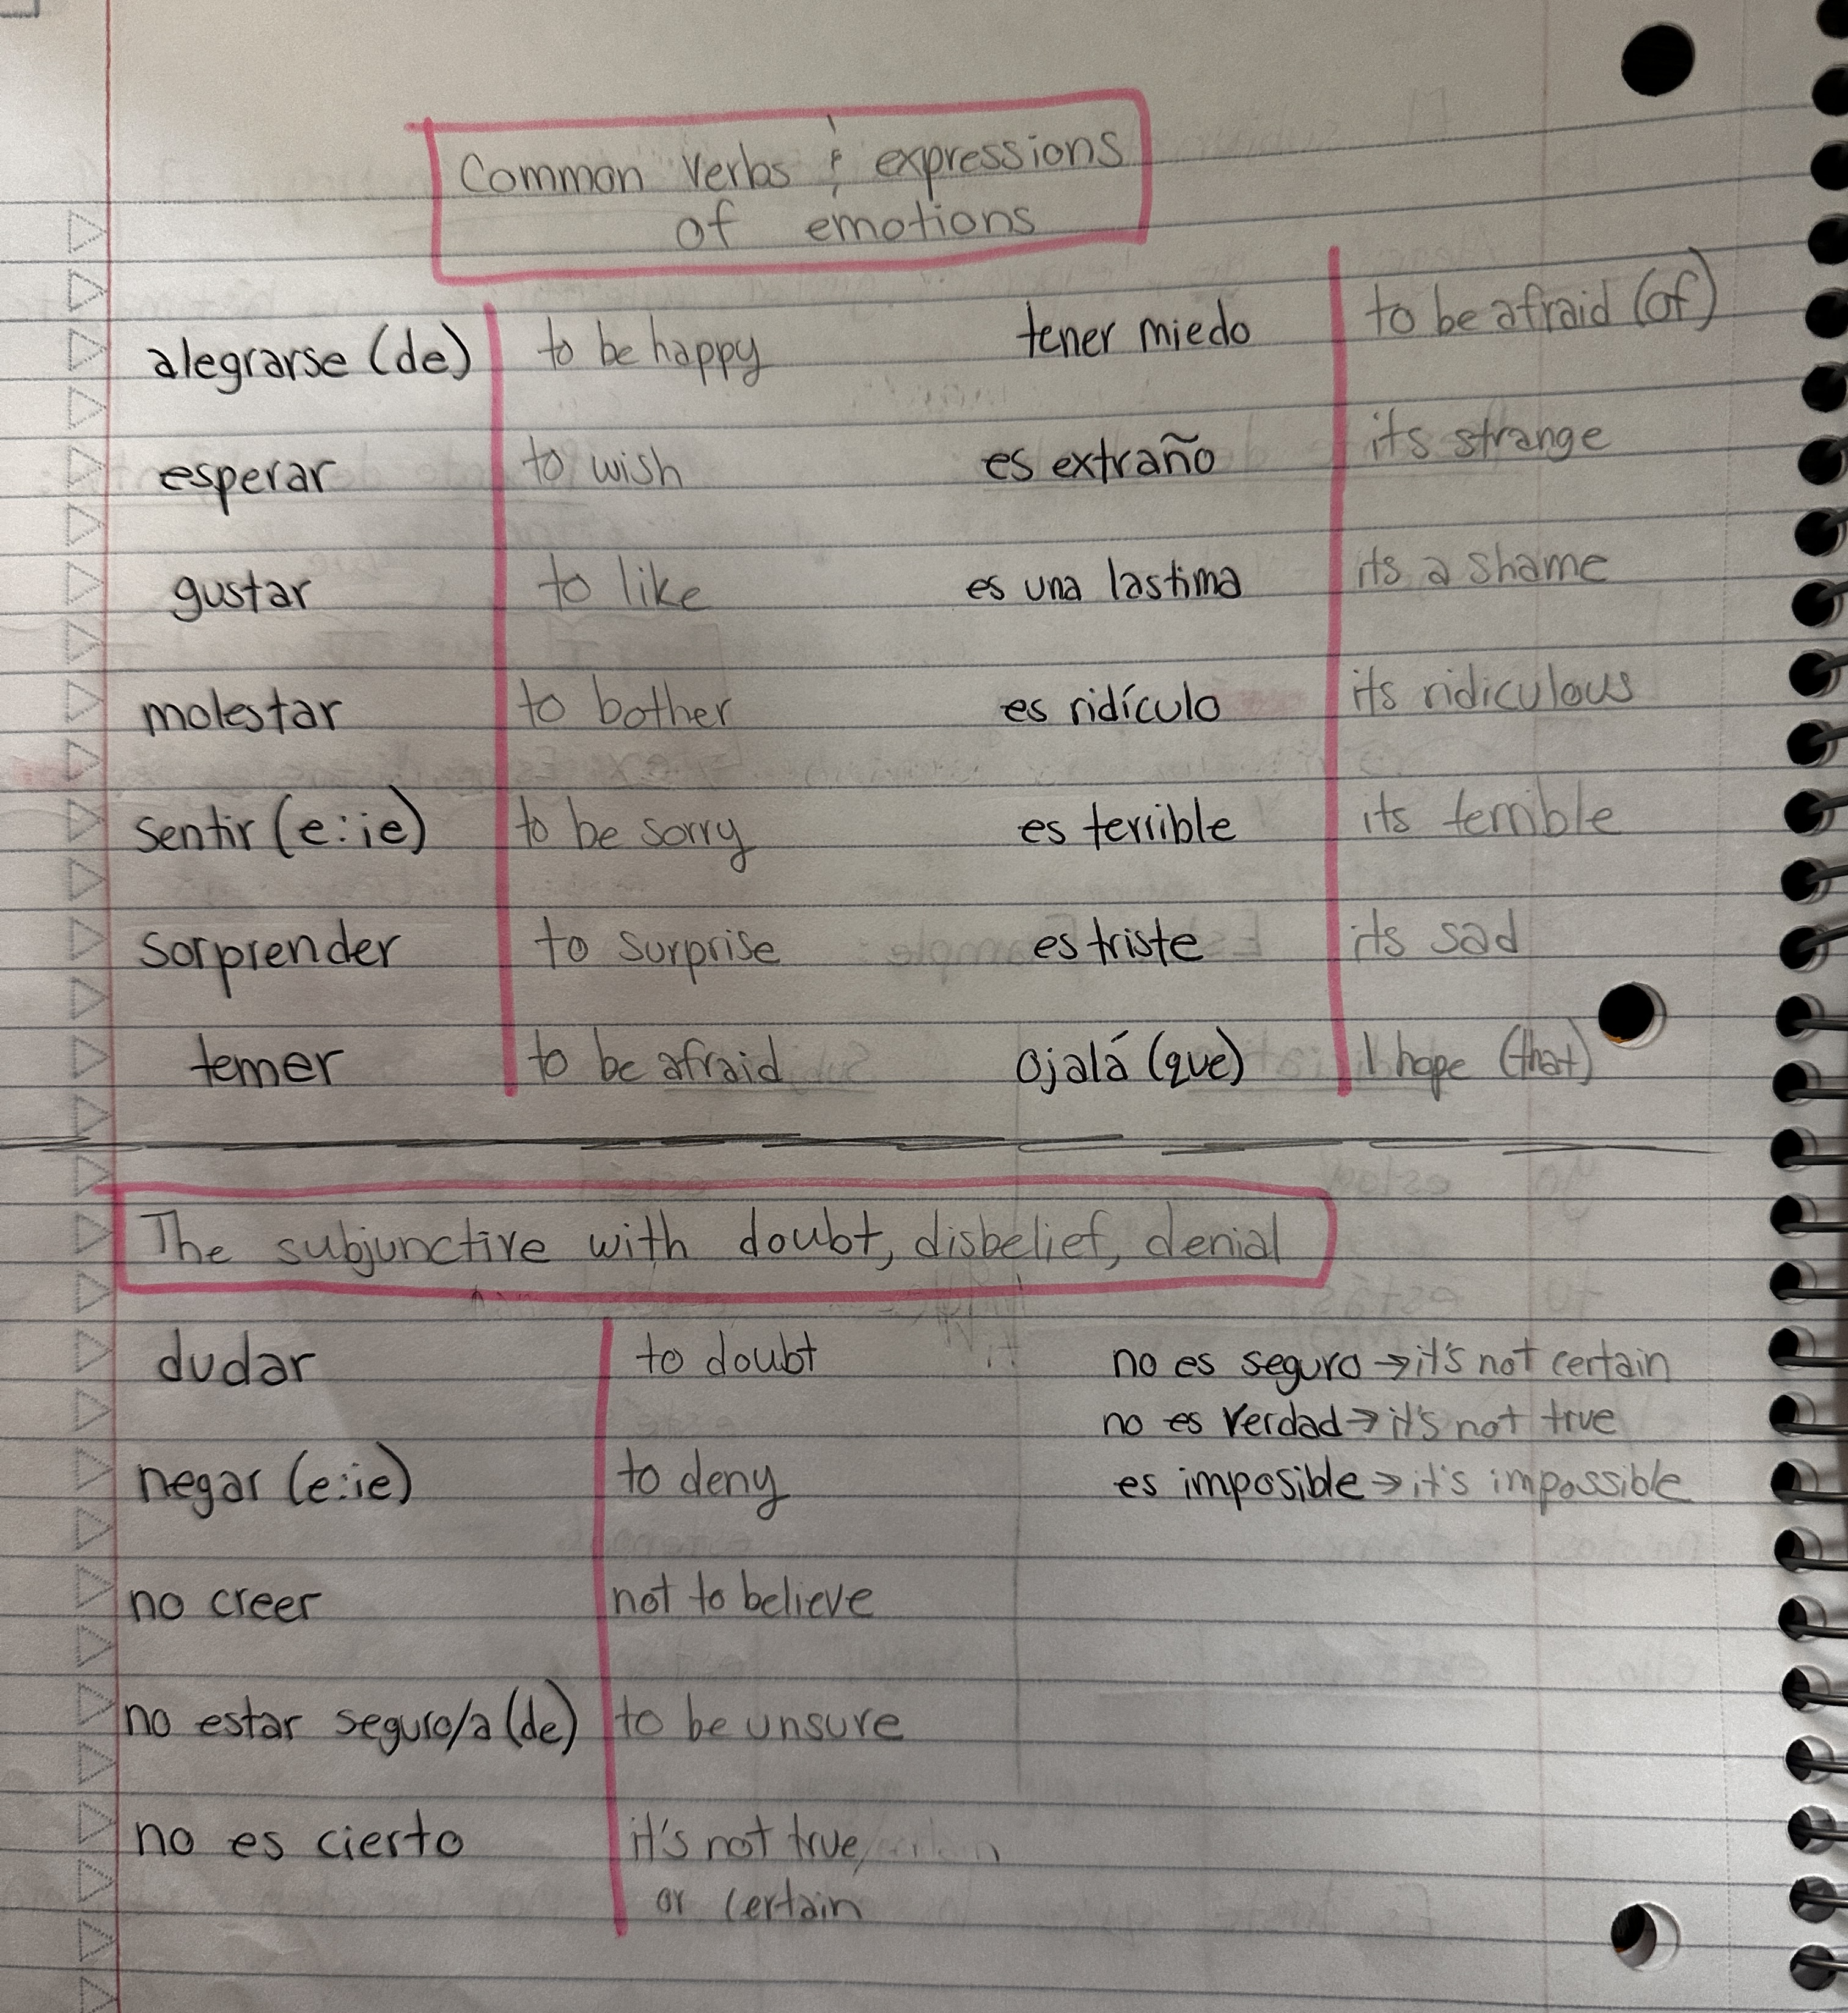 Common Verbs & expressions
of emotions
alegrarse (de) to be happy tener miedo to be afraid (of)
esperar to wish es extraño its strange
gustar to like es una lastima its a shame
molestar to bother es ridículo its ridiculous
sentir (e:ie) to be sorry es terrible its terrible
sorprender to surprise es triste its sad
temer to be afraid ojalá (que) I hope (that)
The subjunctive with doubt, disbelief, denial
dudar to doubt no es seguro → it's not certain
no es verdad → it's not true
negar (e:ie) to deny es imposible → it's impossible
no creer not to believe
no estar seguro/a (de) to be unsure
no es cierto it's not true
or certain